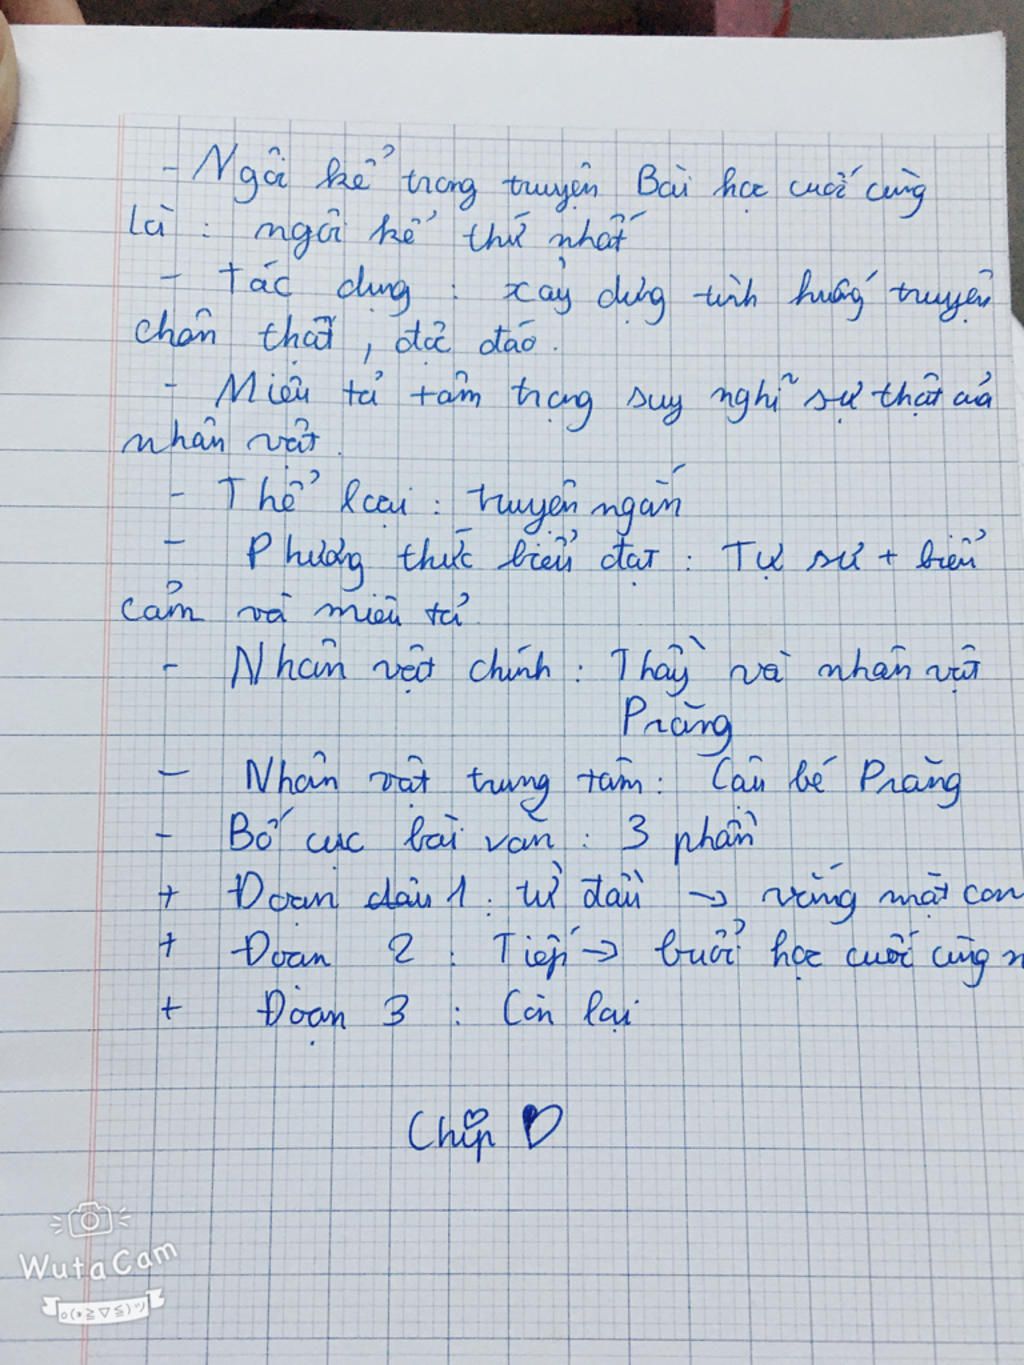 - Ngôi kể trong truyện Bài học cuối cùng
là : ngôi kể thứ nhất
- Tác dụng : xây dựng tình huống truyện
chân thật, độc đáo.
- Miêu tả tâm trạng suy nghĩ sự thật của
nhân vật.
- Thể loại : truyện ngắn
- Phương thức biểu đạt : Tự sự + biểu
cảm và miêu tả
- Nhân vật chính : Thầy và nhân vật
Prăng
- Nhân vật trung tâm : Cậu bé Prăng
- Bố cục bài văn : 3 phần
+ Đoạn đầu 1 : từ đầu → vắng mặt con
+ Đoạn 2 : Tiếp → buổi học cuối cùng n
+ Đoạn 3 : Còn lại
Chíp
WutaCam
o(*≧▽≦)ツ